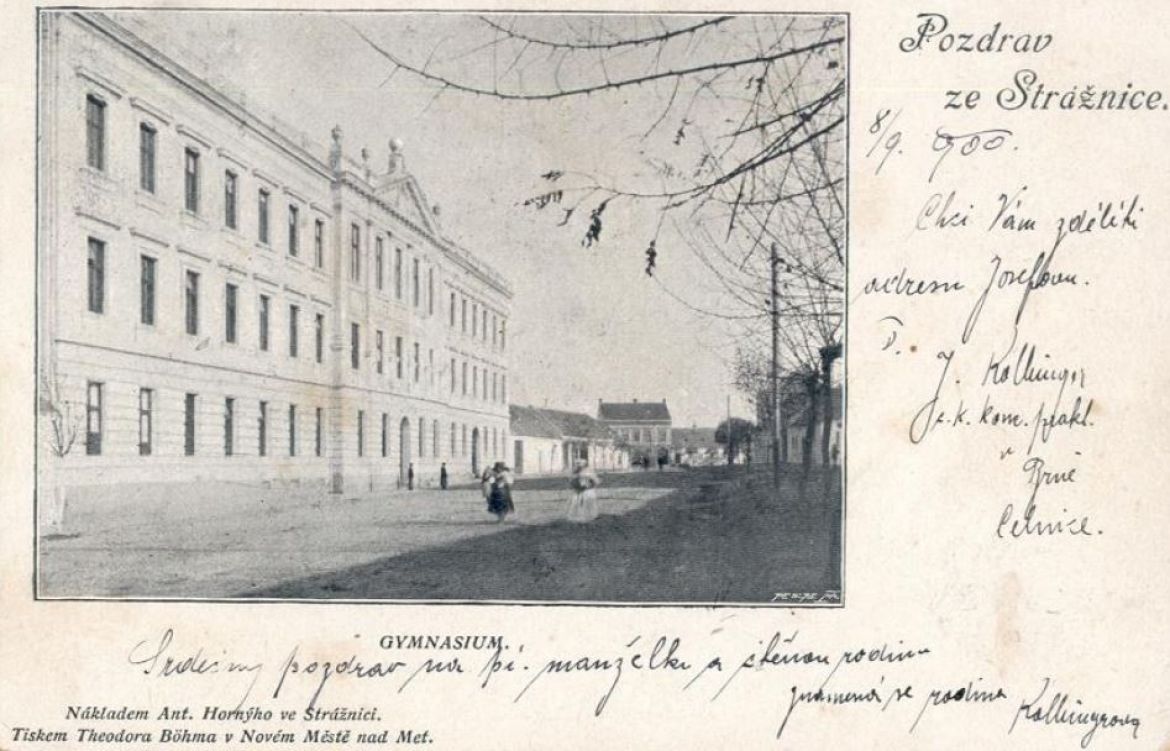 Pozdrav
ze Strážnice.
8/9. 900.
Chci Vám zděliti
adresu Josefovu.
J. Kollinger
k. kom. prakt.
v
Brně
Celnice.
GYMNASIUM.
Srdečný pozdrav na pí. manželku a ctěnou rodinu
znamená se rodina Kollingrova
Nákladem Ant. Horného ve Strážnici.
Tiskem Theodora Böhma v Novém Městě nad Met.